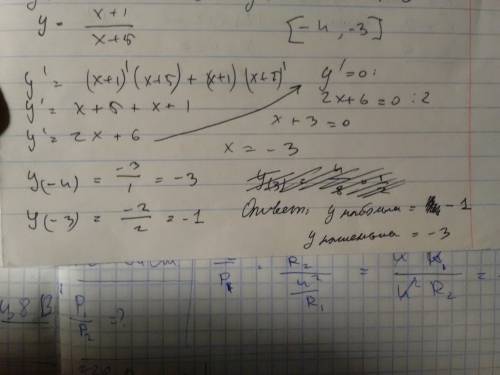 y = x+1 / x+5 [-4, -3]
y' = (x+1)'(x+5) + (x+1)(x+5)'
y' = x + 5 + x + 1
y' = 2x + 6
y' = 0:
2x+6 = 0 :2
x + 3 = 0
x = -3
y(-4) = -3/1 = -3
y(-3) = -2/2 = -1
Ответ: y наибольш = -1
y наименьш = -3
P₁
R₂
R₁
R₁
R₂
P₁/P₂ = ?